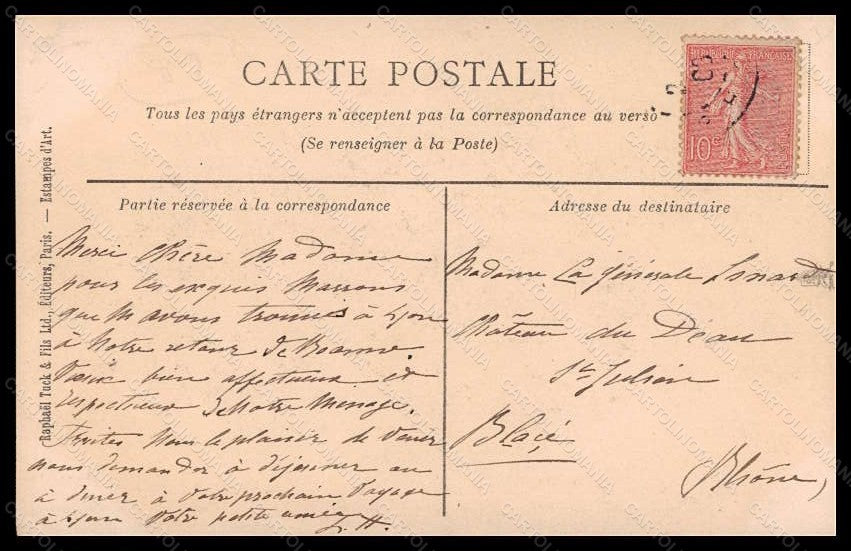 CARTE POSTALE
Tous les pays étrangers n'acceptent pas la correspondance au verso
(Se renseigner à la Poste)
REPUBLIQUE FRANÇAISE
10 c
Partie réservée à la correspondance
Adresse du destinataire
Raphaël Tuck & Fils Ltd., Éditeurs, Paris. — Estampes d'Art.
Merci Chère Madame
pour les exquis Marrons
que nous avons trouvés à Lyon
à Notre retour de Roanne.
bien affectueux et
respectueux de Notre Menage.
Faites nous le plaisir de venir
nous demander à déjeuner ou
à diner à votre prochain voyage
à Lyon Votre petite amie
J. H.
Madame La Générale
Château du Déau
St Julien
Blacé
Rhône
CARTOLINOMANIA